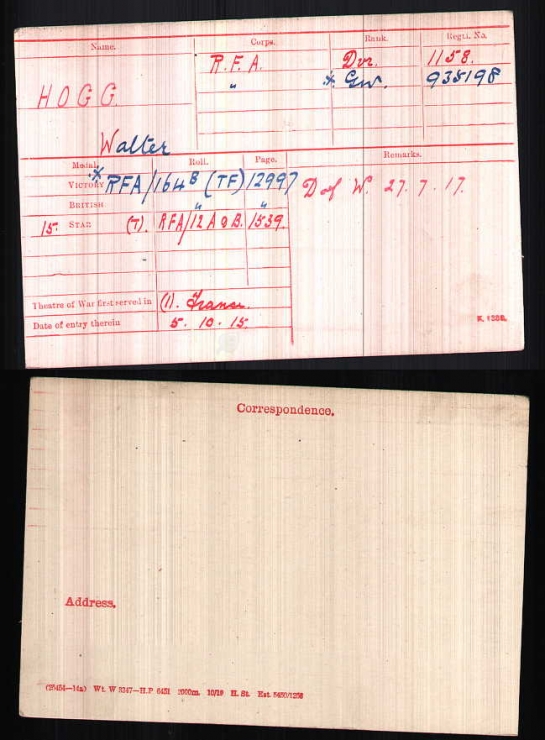 Name. Corps. Rank. Regtl. No.
HOGG R.F.A. Dvr. 1158.
" * Gnr. 938198
Walter
Medal. Roll. Page. Remarks.
* VICTORY RFA/164B (TF) 12997 D of W. 27.7.17.
BRITISH " "
15 STAR (7). RFA/12A & B. 1539.
Theatre of War first served in (1). France.
Date of entry therein 5. 10. 15
K. 1380.
Correspondence.
Address.
Wt. W 5347—H.P 2000m. 10/19 H. St.